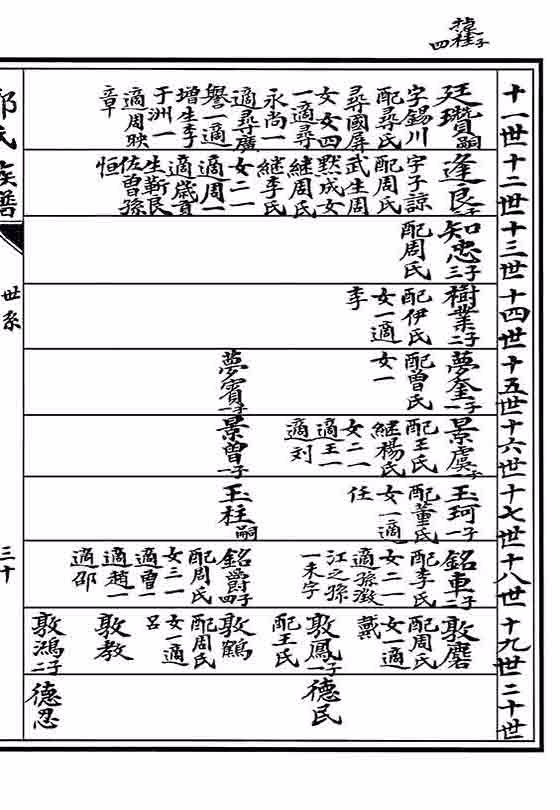 四子
十一世
十二世
十三世
十四世
十五世
十六世
十七世
十八世
十九世
二十世
廷瓚嗣
字錫川
配尋氏
尋國屏
女女四
一適尋
永尚一
適尋廣
譽一適
增生李
于洲一
適周映
章
逢良
字子諒
配周氏
武生周
黙成女
継周氏
継李氏
女二一
適周一
適歲貢
生靳良
佐曾孫
恒
知忠三子
配周氏
樹業二子
配伊氏
女一適
李
夢奎一子
配曾氏
女一
夢賓一子
景虞一子
配王氏
継楊氏
女二一
適王一
適刘
景曾一子
玉珂一子
配董氏
女一適
任
玉柱嗣
銘車二子
配李氏
女二一
適孫澂
江之孫
一未字
銘爵四子
配周氏
女三一
適曾一
適趙一
適邵
敦磨
配周氏
女一適
戴
敦鳳一子
配王氏
敦鶴
配周氏
女一適
呂
敦教
敦鴻二子
德民
德忍
氏族譜
世系
三十